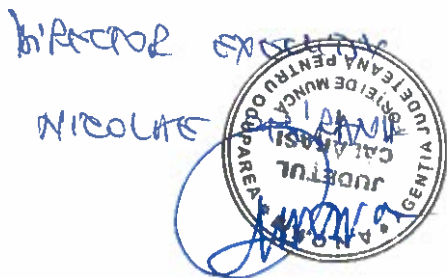 DIRECTOR EXECUTIV
NICOLAE
AGENȚIA JUDEȚEANĂ PENTRU OCUPAREA
FORȚEI DE MUNCĂ
CALARASI
JUDETUL
A.N.O.F.M.